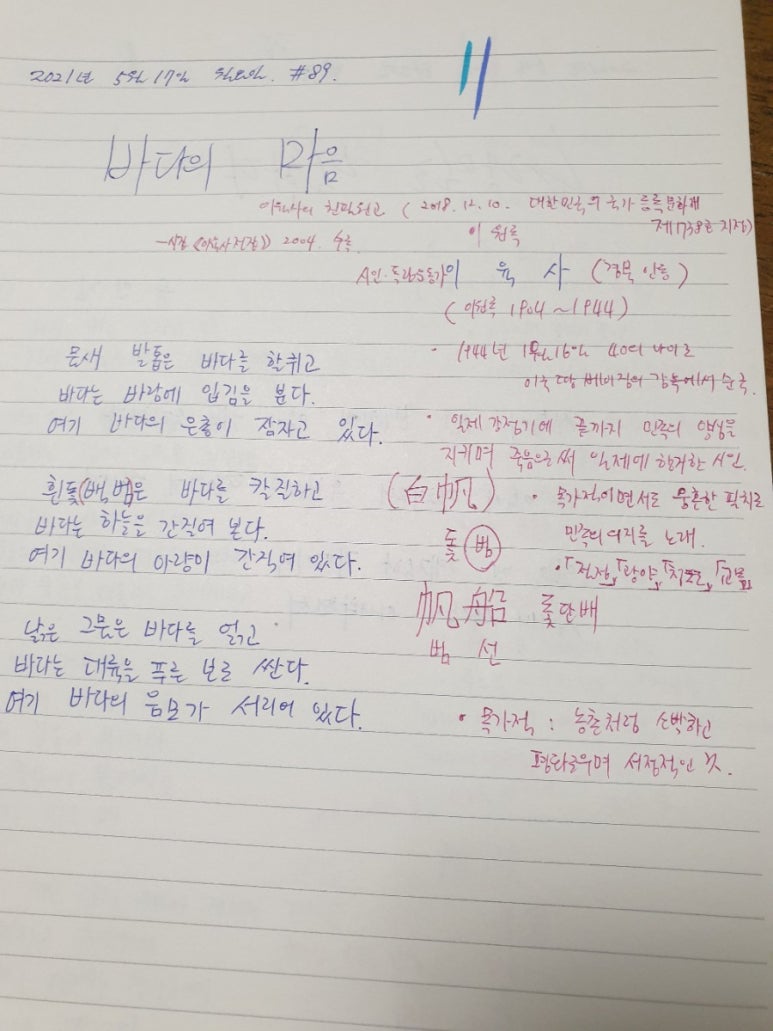 2021년 5월 17일 월요일. #89.
바다의 마음
이육사의 친필원고 (2018. 12. 10. 대한민국의 국가 등록문화재
제1738호 지정)
이원록
-시집 《이육사전집》 2004. 수록
시인·독립운동가 이 육 사 (경북 안동)
(이원록 1904~1944)
물새 발톱은 바다를 할퀴고
바다는 바람에 입김을 분다.
여기 바다의 은총이 잠자고 있다.
흰돛(백범)은 바다를 칼질하고
바다는 하늘을 간질여 본다.
여기 바다의 아량이 간직여 있다.
낡은 그물은 바다를 얽고
바다는 대륙을 푸른 보로 싼다.
여기 바다의 음모가 서리어 있다.
· 1944년 1월 16일 40의 나이로
이국땅 베이징의 감옥에서 순국.
· 일제 강점기에 끝까지 민족의 양심을
지키며 죽음으로써 일제에 항거한 시인.
(白帆)
돛 범
帆船 돛단배
범 선
· 목가적이면서도 웅혼한 필치로
민족의 의지를 노래.
·「절정」「광야」「청포도」「교목」
· 목가적 : 농촌처럼 소박하고
평화로우며 서정적인 것.